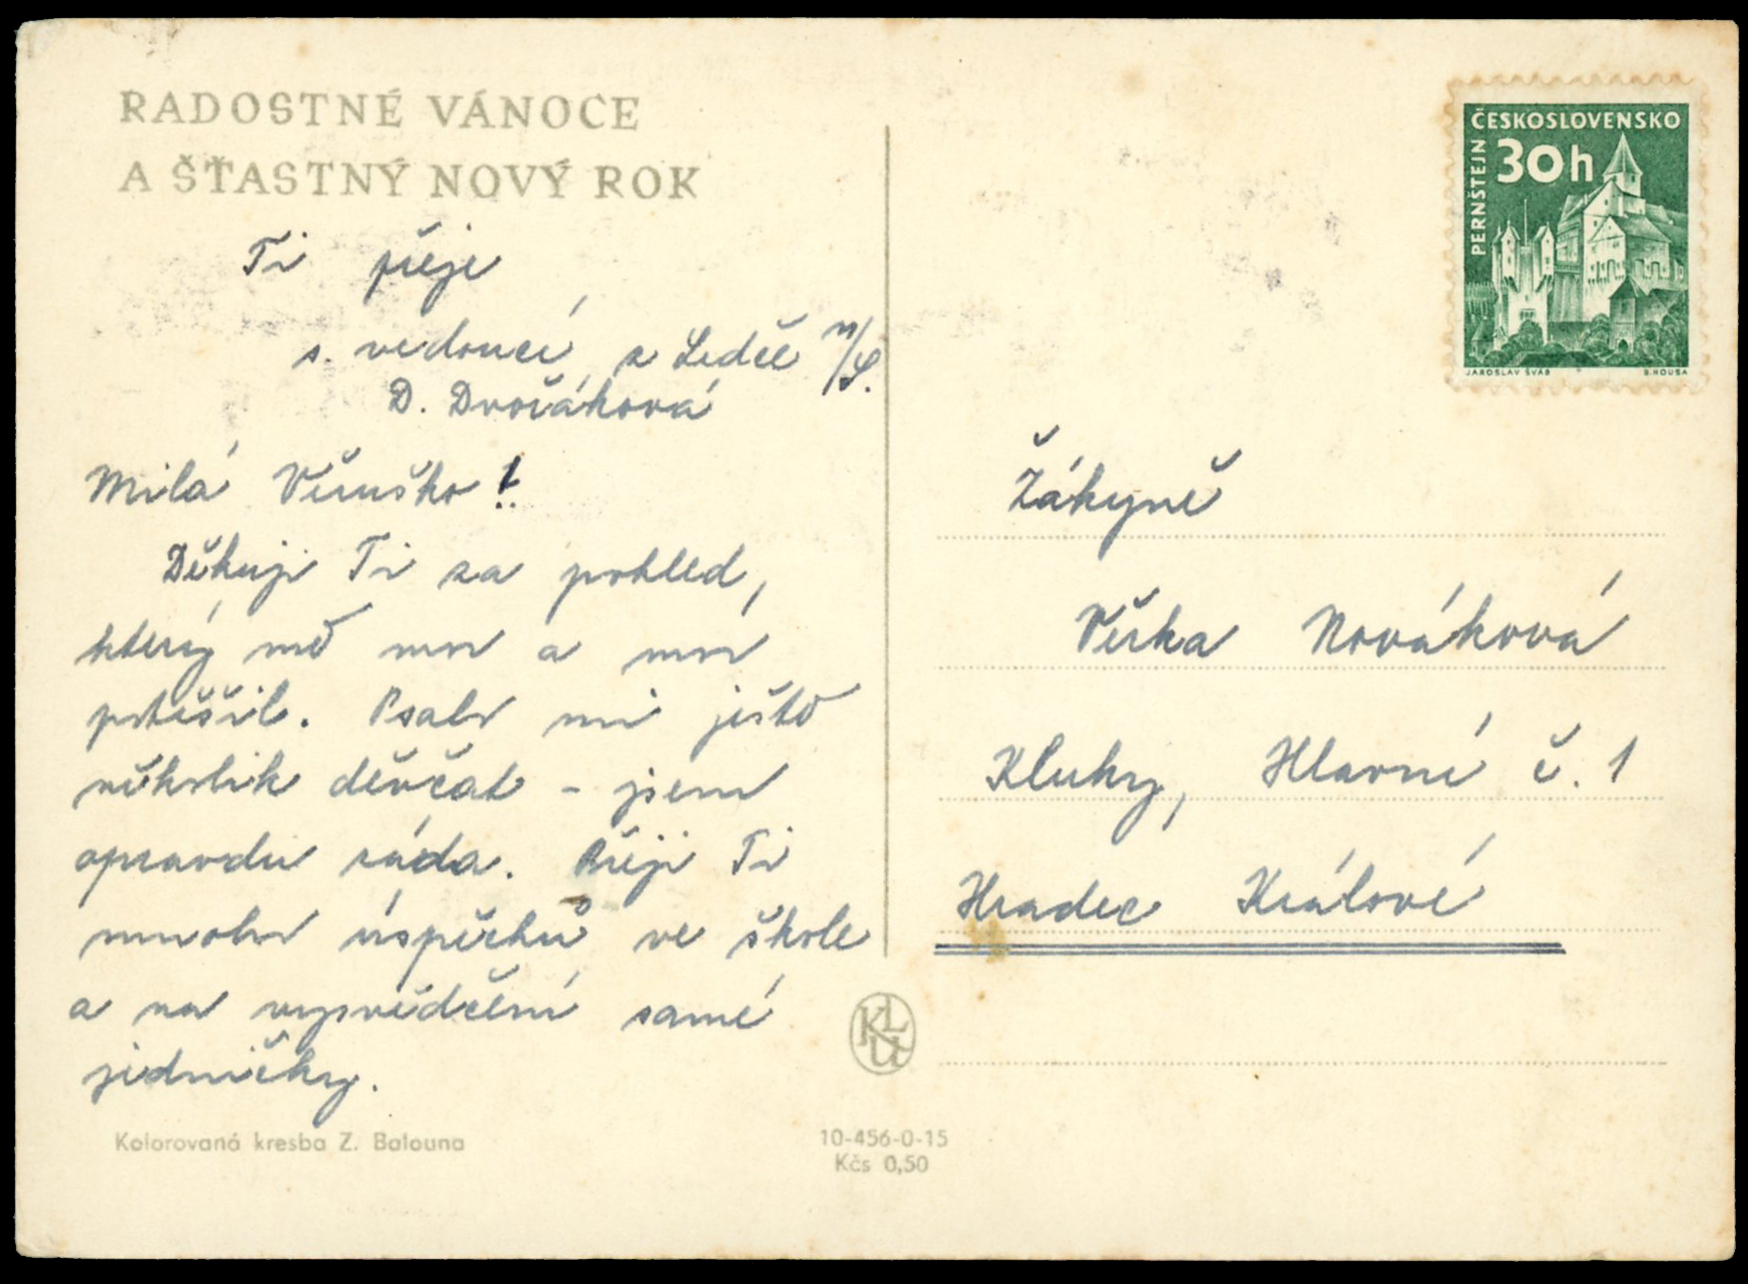 RADOSTNÉ VÁNOCE
A ŠŤASTNÝ NOVÝ ROK
Ti přeje
s. vedoucí z Ledče n/S.
D. Dvořáková
Milá Věruško!
Děkuji Ti za pohled,
který mě moc a moc
potěšil. Psalo mi ještě
několik děvčat - jsem
opravdu ráda. Přeji Ti
mnoho úspěchů ve škole
a na vysvědčení samé
jedničky.
Kolorovaná kresba Z. Balouna
KLU
10-456-0-15
Kčs 0,50
ČESKOSLOVENSKO
30h
PERNŠTEJN
JAROSLAV ŠVÁB
B. HOUSA
Žákyně
Věrka Nováková
Kluky, Hlavní č. 1
Hradec Králové